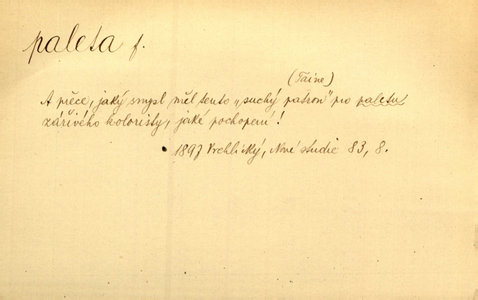 paleta f.
(Taine)
A přece, jaký smysl měl tento „suchý patron" pro paletu
zářivého koloristy, jaké pochopení!
1897 Vrchlický, Nové studie 83, 8.